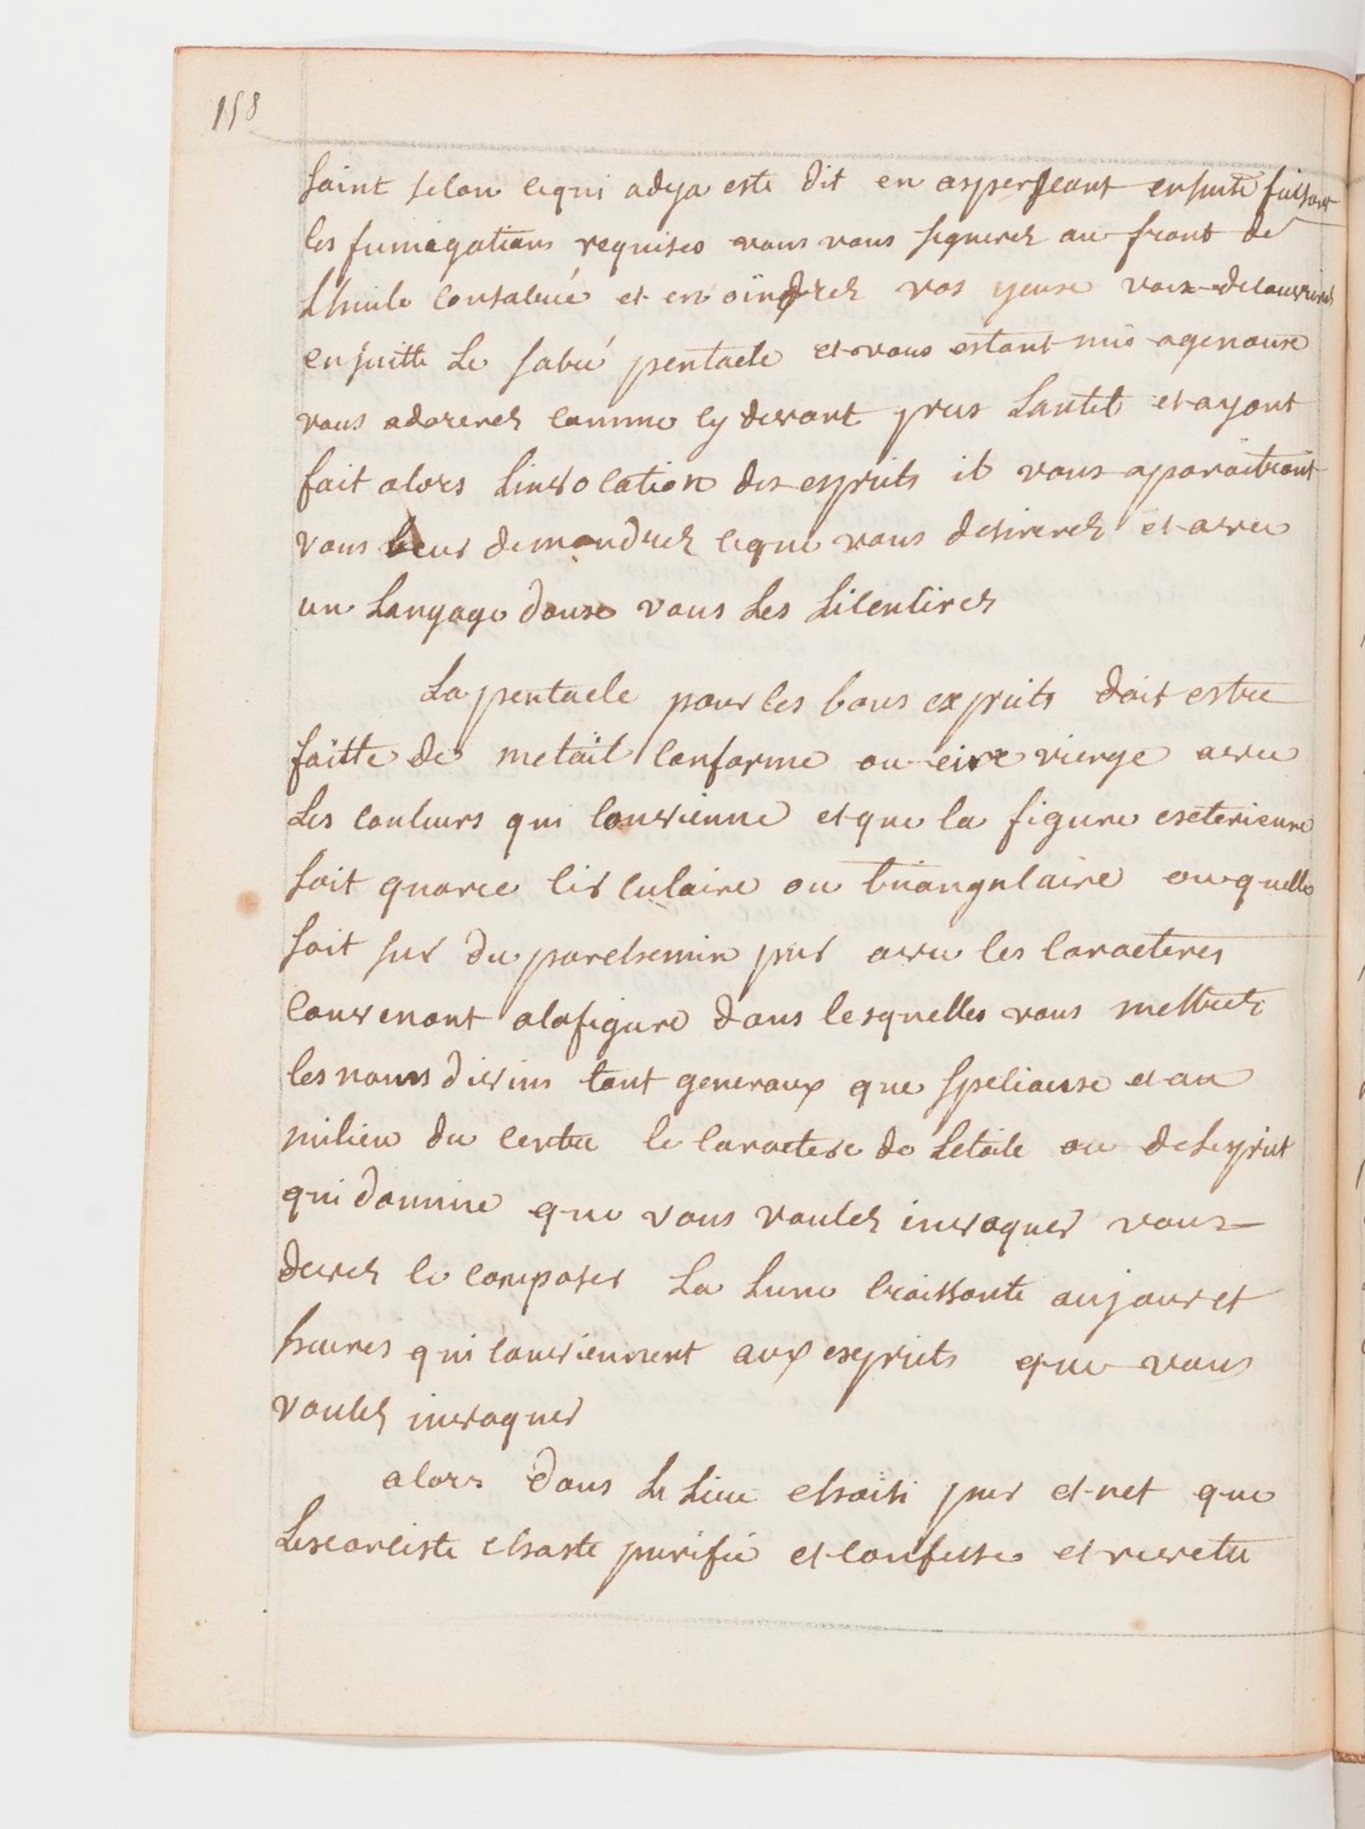 158
saint selon cequi adeja este dit en asperseant ensuite faisant
les fumigations requises vous vous signerez au front de
Lhuile consacreé et en oindrez vos yeuse vous decouvrirez
ensuitte Le sacré pentacle et vous estant mis agenouse
vous adorerez comme cy devant pres Lautel et ayant
fait alors Linvocation des esprits il vous aparaitront
vous leur demandrez cequi vous desirerez et avec
un Langage douse vous Les Licentirez
La pentacle pour les bons esprits doit estre
faitte de metail conforme ou cire vierge avec
Les couleurs qui convienne et que la figure exterieure
soit quaree circulaire ou triangulaire ou quelle
soit sur du parchemin pur avec les caracteres
convenant alafigure dans lesquelles vous mettrez
les noms divins tant generaux que speciause et au
milieu du centre le caractere de Letoile ou de Lesprit
qui domine que vous voulez invoquer vous
devez le composer La Lune craissante aujour et
heures qui conviennent aux esprits que vous
voulez invoquer
alors dans Le Lieu choisi pur et net que
Lexorciste chaste purifié et confesse et revetu